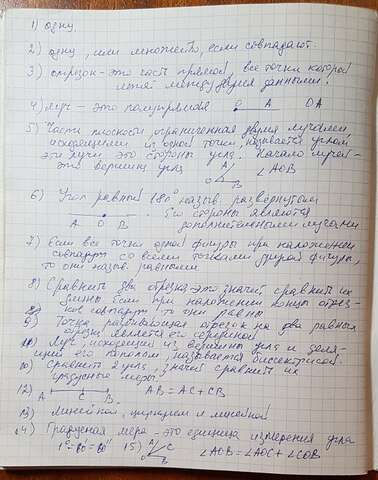 1) одну.
2) одну, или множество, если совпадают.
3) отрезок - это часть прямой, все точки которой
лежат между двумя данными.
4) луч - это полупрямая O A OA
5) Часть плоскости, ограниченная двумя лучами,
исходящими из одной точки, называется углом,
эти лучи это стороны угла. Начало лучей -
это вершина угла A O B ∠AOB
6) Угол равный 180° назыв. развернутым
A O B его стороны являются
дополнительными лучами
7) Если все точки одной фигуры при наложении
совпадут со всеми точками другой фигуры,
то они назыв. равными
8) Сравнить два отрезка это значит сравнить их
длины Если при наложении концы отрез-
ков совпадут то они равны
9) Точка разбивающая отрезок на два равных
является его серединой
11) Луч, исходящий из вершины угла и деля-
щий его пополам, называется биссектрисой.
10) Сравнить 2 угла, значит сравнить их
градусные меры.
12) A C B AB = AC + CB
13) Линейкой, циркулем и линейкой
14) Градусная мера - это единица измерения угла
15) A C B ∠AOB = ∠AOC + ∠COB